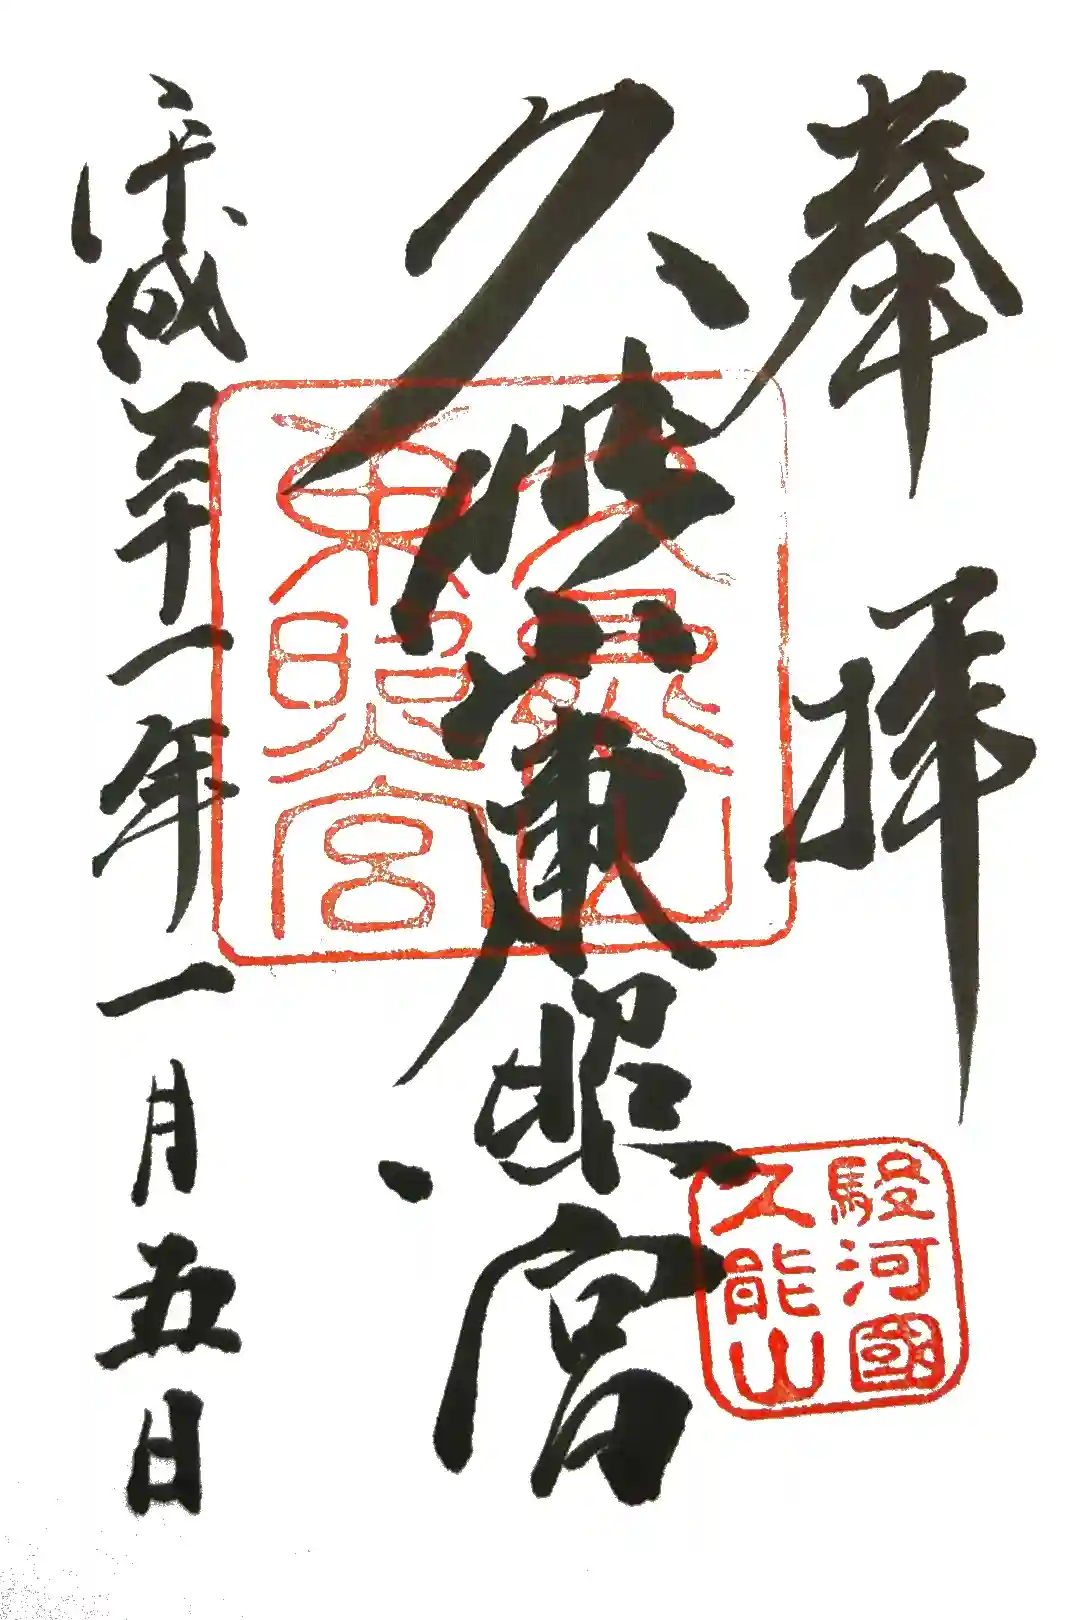 奉拝
久能山東照宮
平成三十一年一月五日
久能山
東照宮
駿河國
久能山